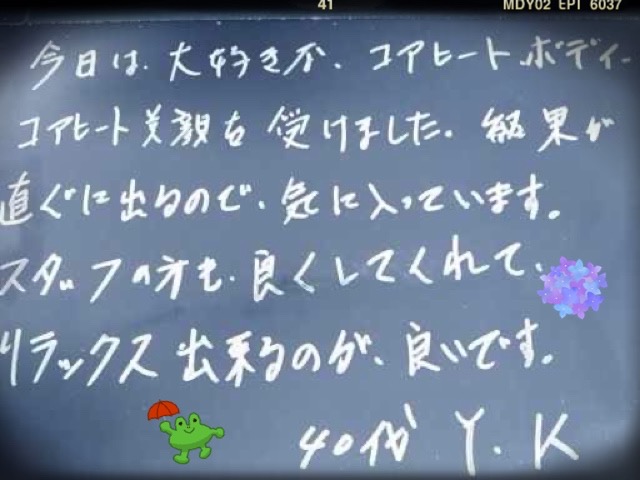 41 MDY02 EPT 6037
今日は、大好きな、コアヒートボディー
コアヒート美顔を受けました。結果が
直ぐに出るので、気に入っています。
スタッフの方も、良くしてくれて、
リラックス出来るのが、良いです。
40代 Y.K